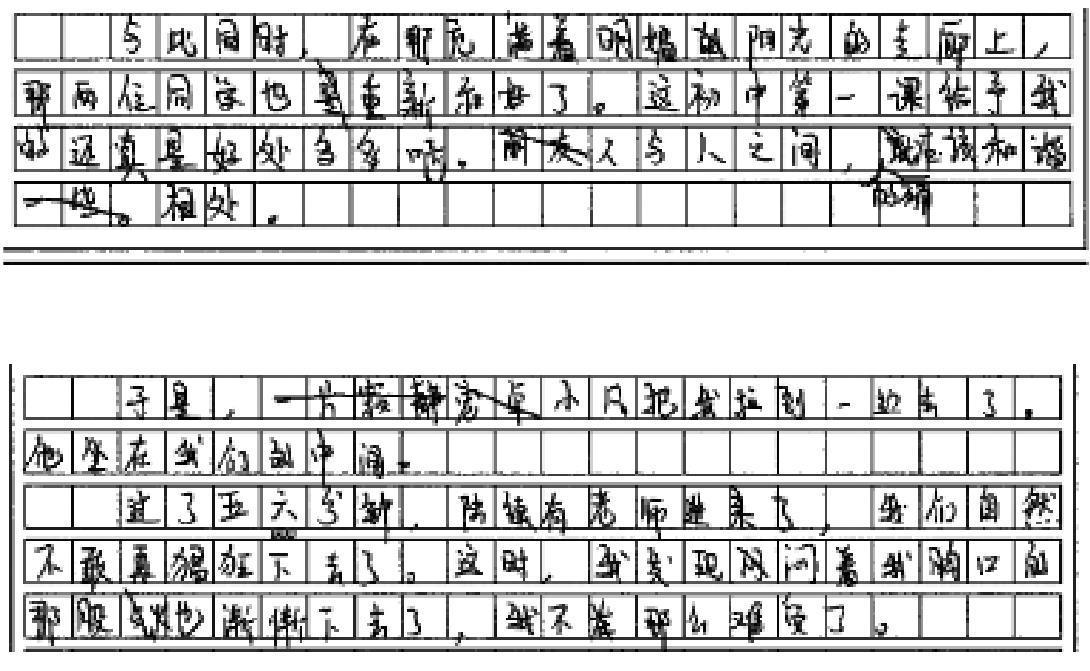 与此同时，在那充满着明媚的阳光的走廊上，
那两位同学也是重新和好了。这初中第一课给予我
的还真是好处多多啊。人与人之间，就应该和谐
相处。
于是，小只把我拉到一起去了。
他坐在我们的中间。
过了五六分钟，陆续有老师进来了，我们自然
不敢再猖狂下去了。这时，我发现闷着我胸口的
那股气也渐渐下去了，我不觉那么难受了。